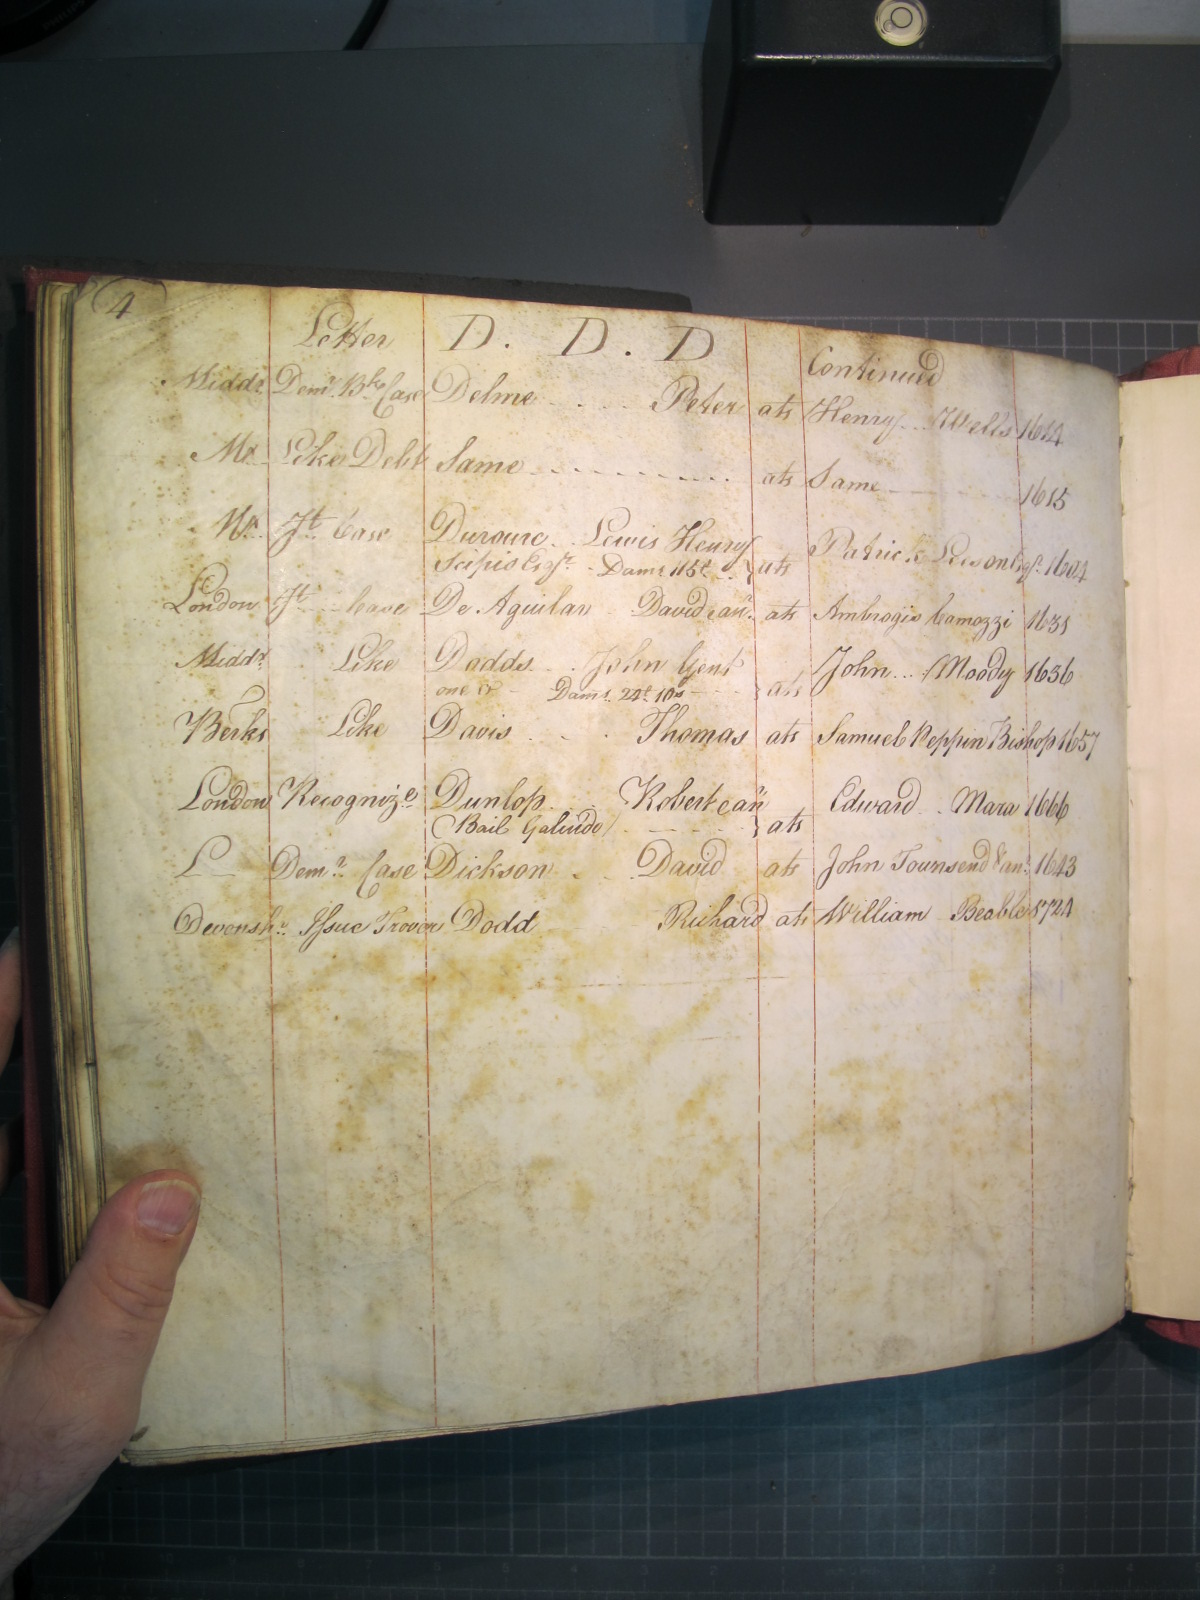 4
Letter D. D. D Continued
Midd.x Dem.r B.k Case Delme Peter ats Henry Wells 1614
M.x Like Debt Same ats Same 1615
M.x J.t Case Duroure Lewis Henry
Scipio Esq.r Dam.s 115£ } ats Patrick Esq.r 1604
London J.t Case De Aguilar David & an.r ats Ambrogio Camozzi 1631
Midd.x Like Dodds John Gent
one &c Dam.s 24£ 10s } ats John Moody 1636
Berks Like Davis Thomas ats Samuel Peppin Bishop 1657
London Recogniz.e Dunlop Robert & an.r
(Bail Galindo) } ats Edward Mara 1666
L Dem.r Case Dickson David ats John Townsend & an.r 1643
Devonsh.r Issue Trover Dodd Richard ats William Beable 1724